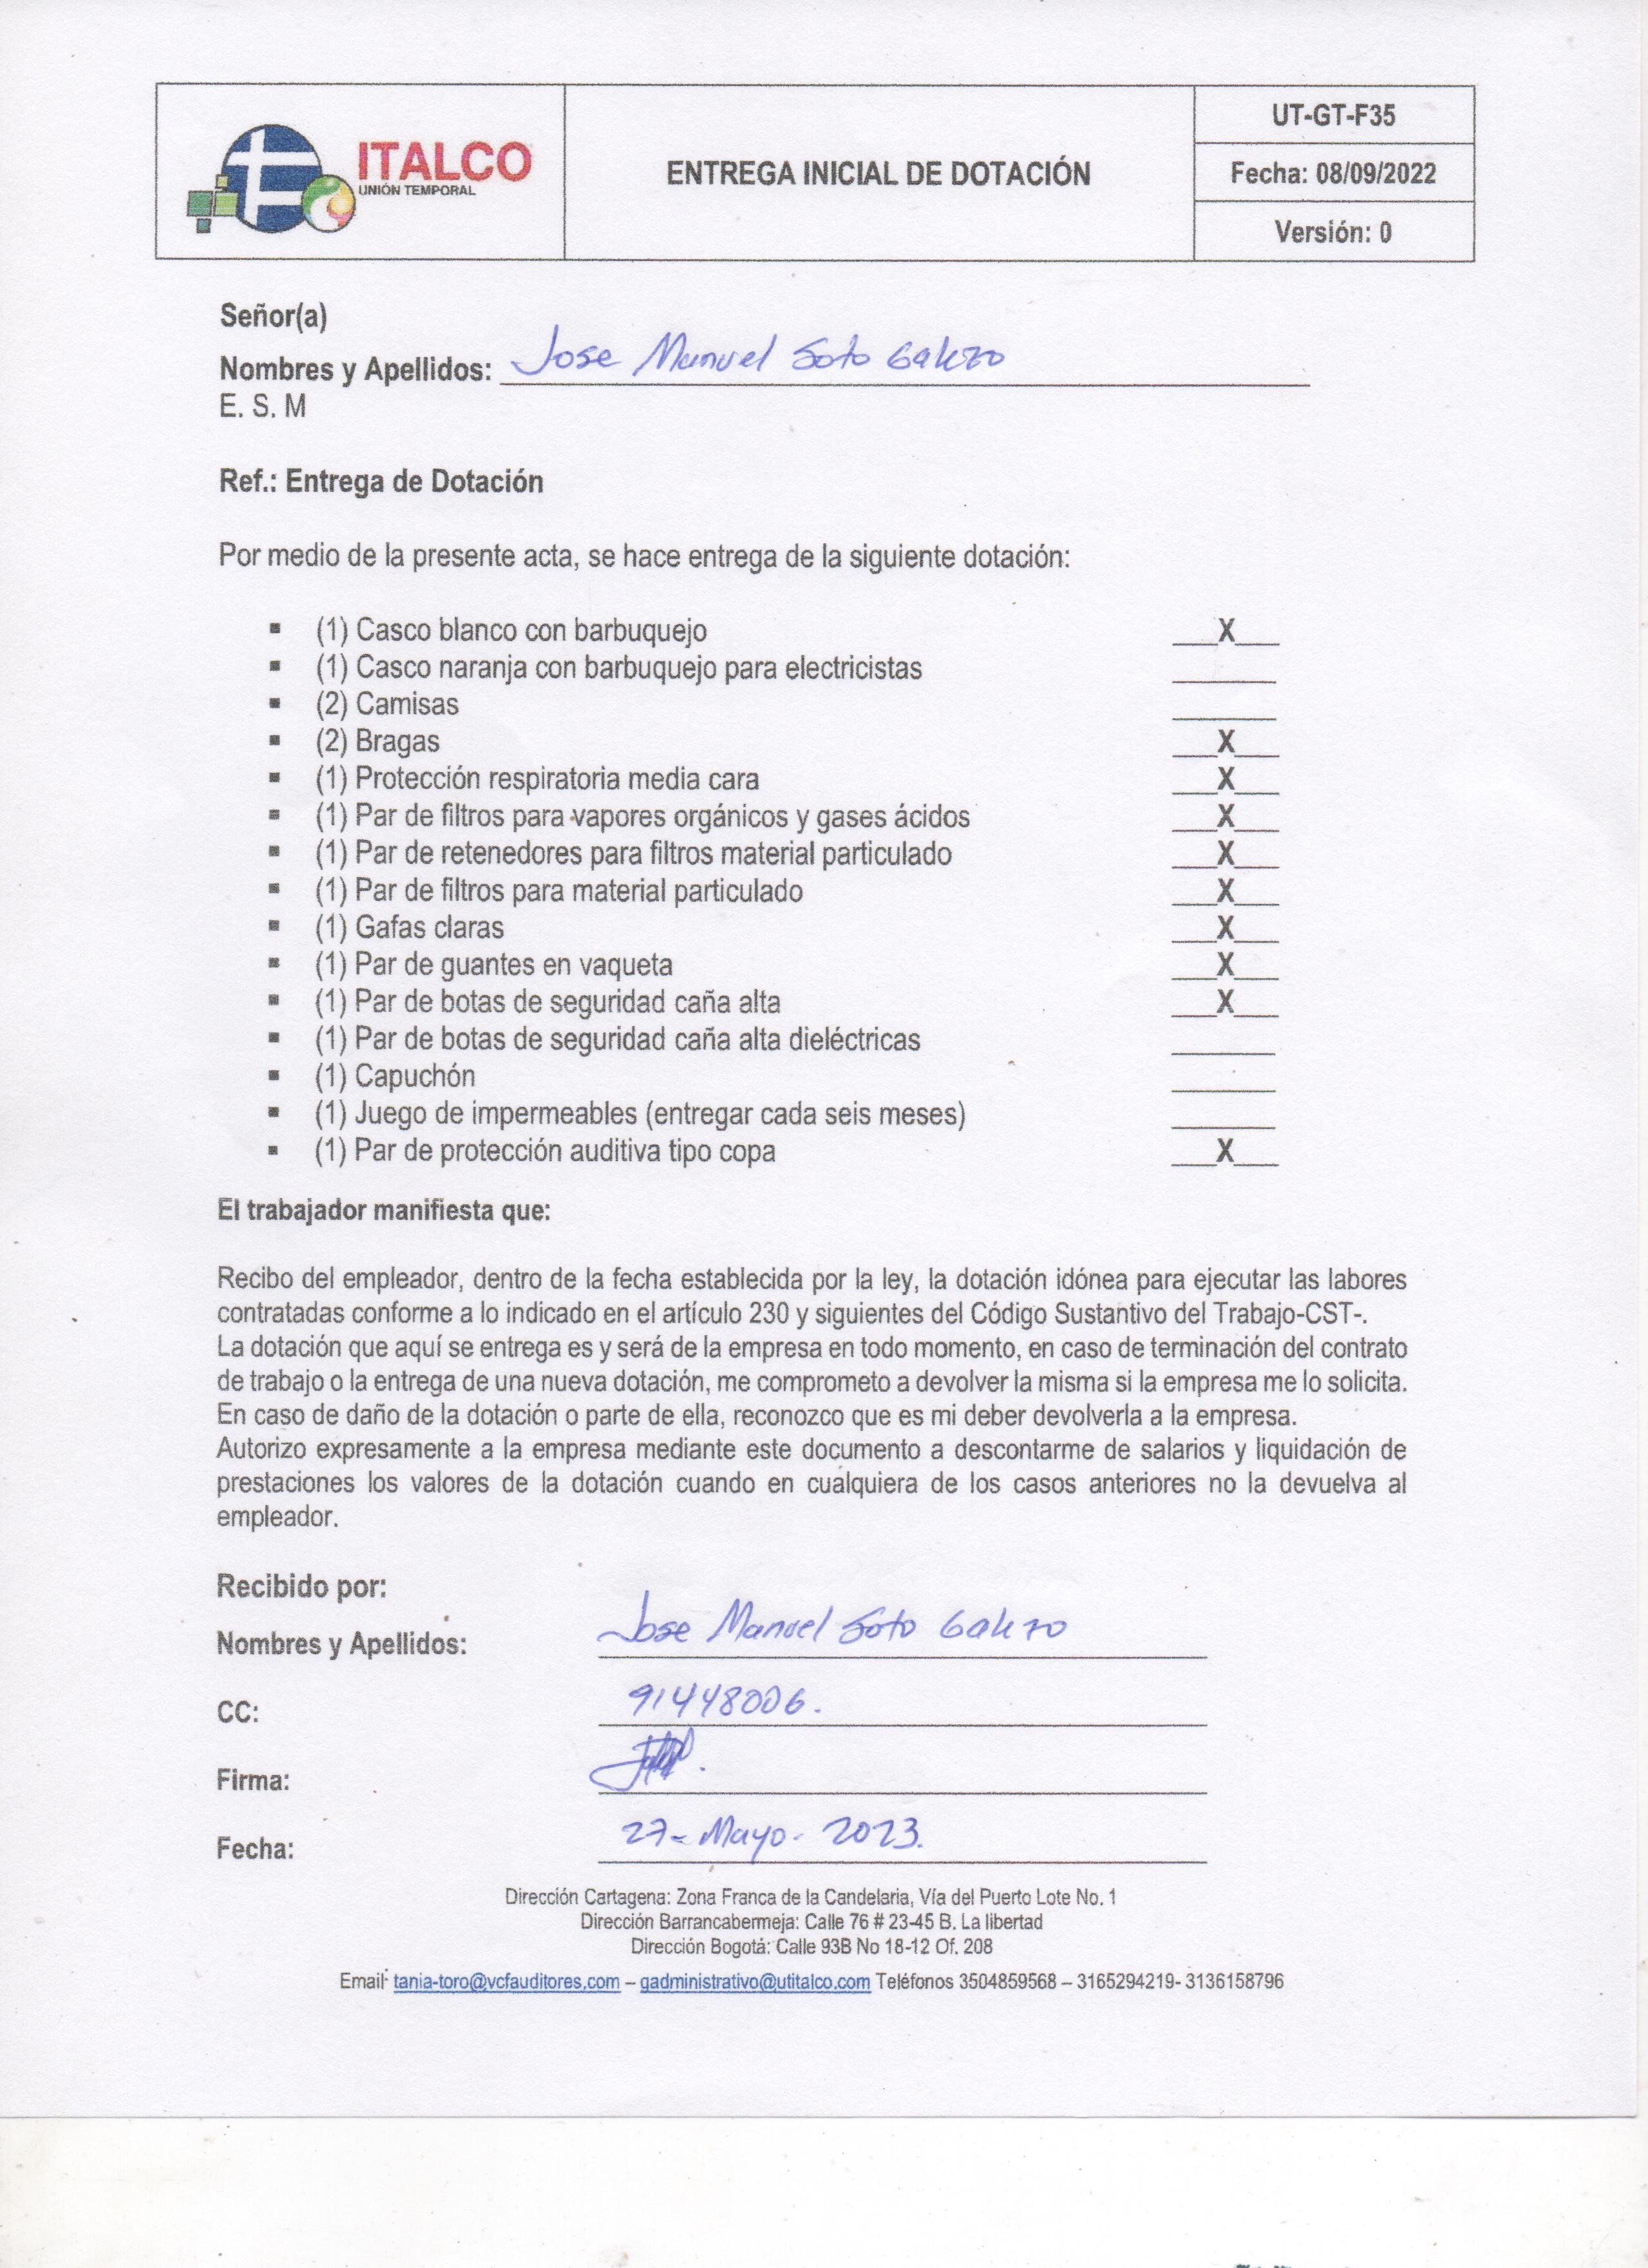 ITALCO
UNIÓN TEMPORAL
ENTREGA INICIAL DE DOTACIÓN
UT-GT-F35
Fecha: 08/09/2022
Versión: 0
Señor(a)
Nombres y Apellidos: Jose Manuel Soto
E. S. M
Ref.: Entrega de Dotación
Por medio de la presente acta, se hace entrega de la siguiente dotación:
▪ (1) Casco blanco con barbuquejo ___X___
▪ (1) Casco naranja con barbuquejo para electricistas _______
▪ (2) Camisas _______
▪ (2) Bragas ___X___
▪ (1) Protección respiratoria media cara ___X___
▪ (1) Par de filtros para vapores orgánicos y gases ácidos ___X___
▪ (1) Par de retenedores para filtros material particulado ___X___
▪ (1) Par de filtros para material particulado ___X___
▪ (1) Gafas claras ___X___
▪ (1) Par de guantes en vaqueta ___X___
▪ (1) Par de botas de seguridad caña alta ___X___
▪ (1) Par de botas de seguridad caña alta dieléctricas _______
▪ (1) Capuchón _______
▪ (1) Juego de impermeables (entregar cada seis meses) _______
▪ (1) Par de protección auditiva tipo copa ___X___
El trabajador manifiesta que:
Recibo del empleador, dentro de la fecha establecida por la ley, la dotación idónea para ejecutar las labores
contratadas conforme a lo indicado en el artículo 230 y siguientes del Código Sustantivo del Trabajo-CST-.
La dotación que aquí se entrega es y será de la empresa en todo momento, en caso de terminación del contrato
de trabajo o la entrega de una nueva dotación, me comprometo a devolver la misma si la empresa me lo solicita.
En caso de daño de la dotación o parte de ella, reconozco que es mi deber devolverla a la empresa.
Autorizo expresamente a la empresa mediante este documento a descontarme de salarios y liquidación de
prestaciones los valores de la dotación cuando en cualquiera de los casos anteriores no la devuelva al
empleador.
Recibido por:
Nombres y Apellidos: Jose Manuel Soto
CC: 91448006.
Firma:
Fecha: 27- Mayo- 2023.
Dirección Cartagena: Zona Franca de la Candelaria, Vía del Puerto Lote No. 1
Dirección Barrancabermeja: Calle 76 # 23-45 B. La libertad
Dirección Bogotá: Calle 93B No 18-12 Of. 208
Email: tania-toro@vcfauditores.com – gadministrativo@utitalco.com Teléfonos 3504859568 – 3165294219- 3136158796